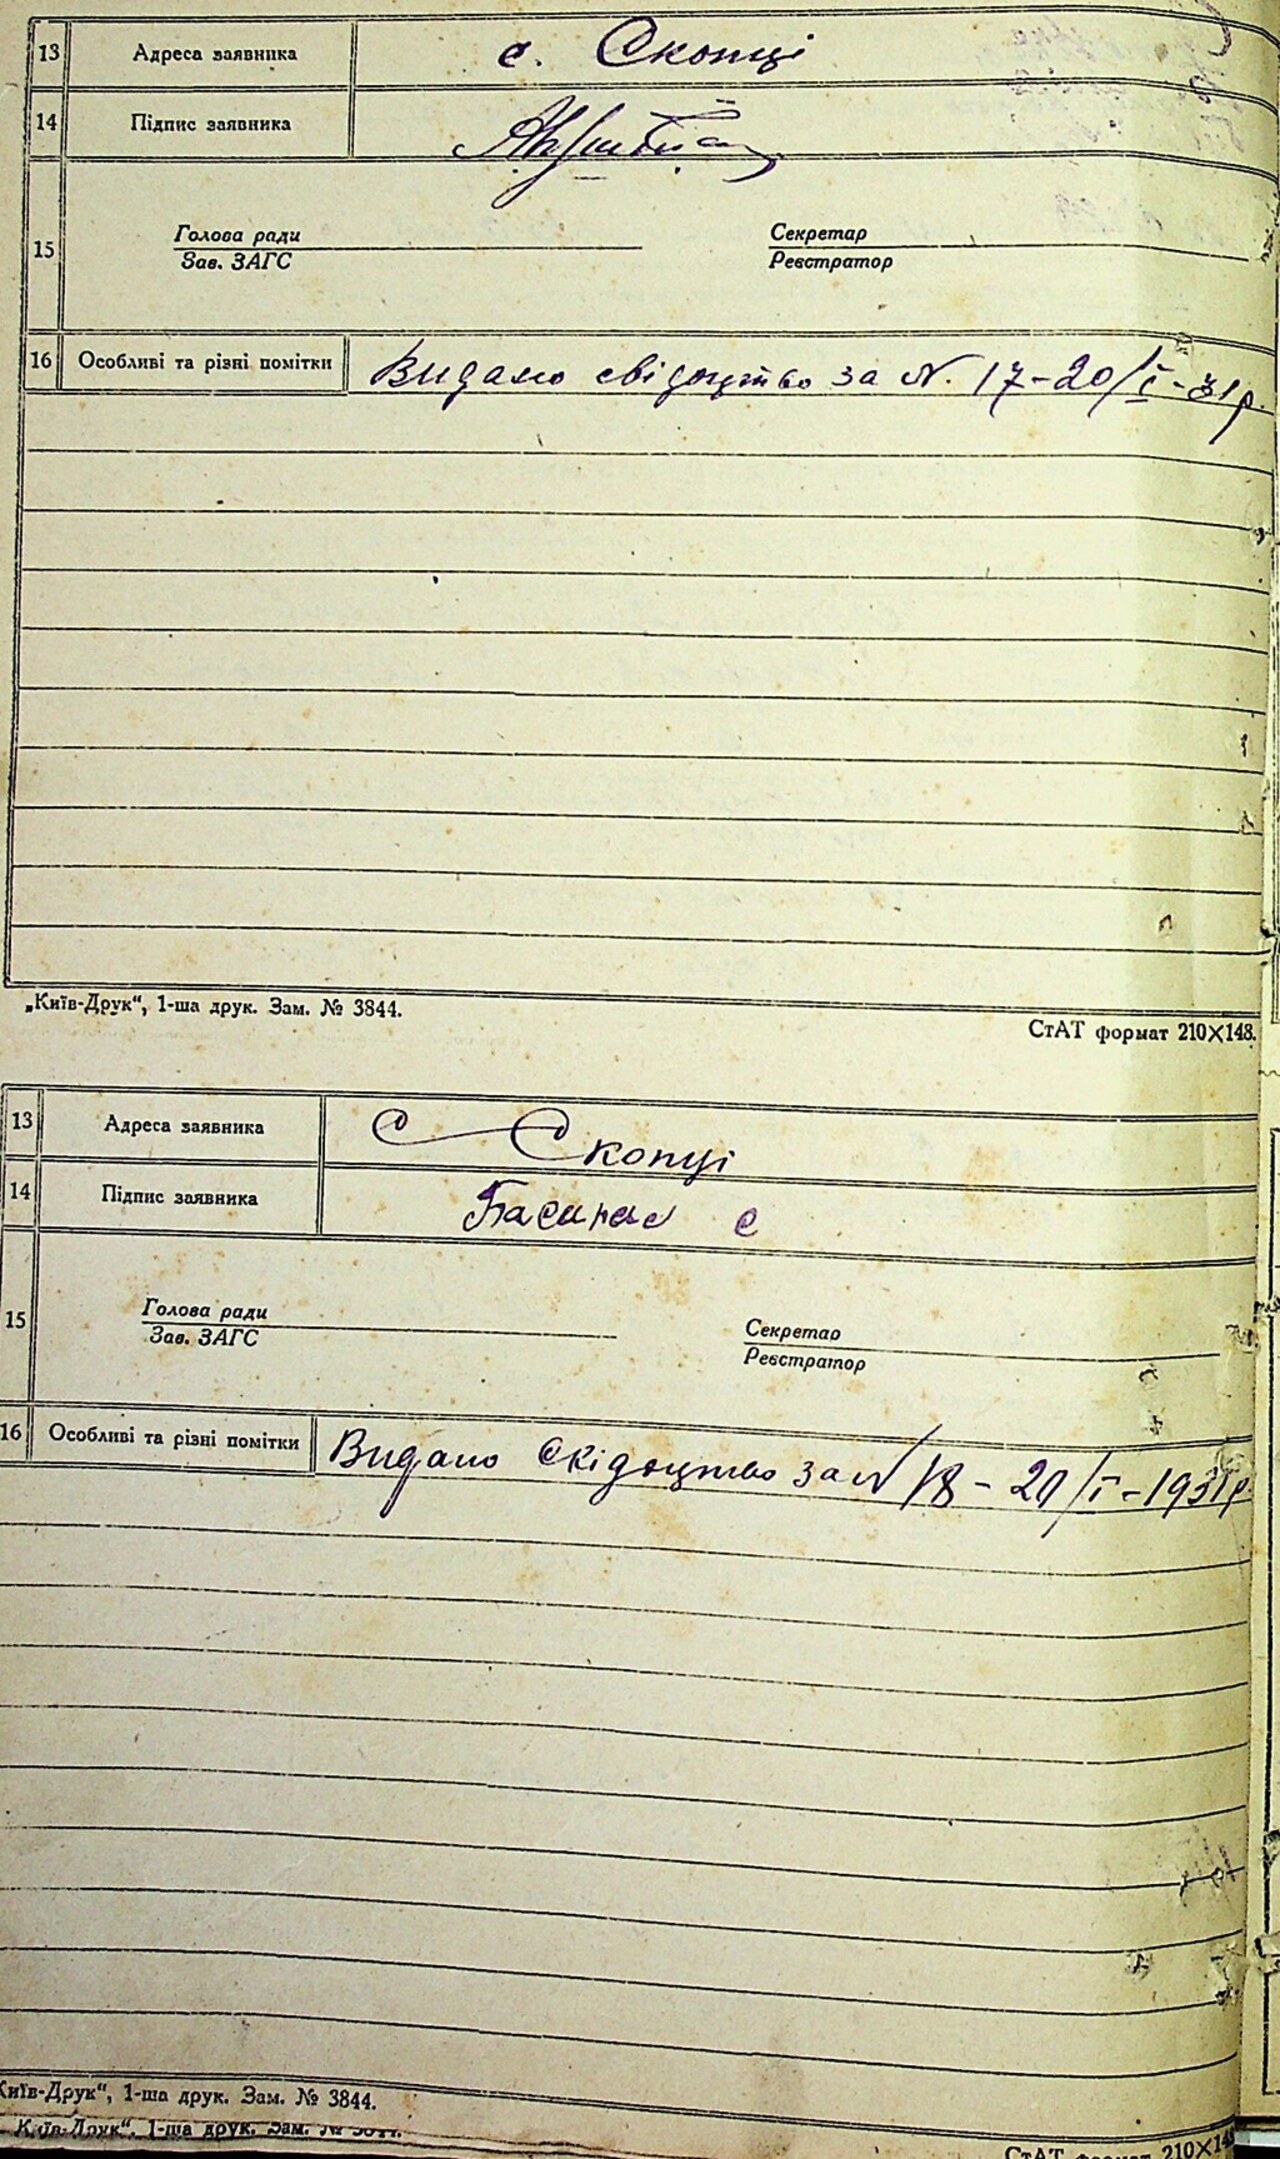 13 Адреса заявника с. Скопці
14 Підпис заявника
15 Голова ради Секретар
Зав. ЗАГС Реєстратор
16 Особливі та різні помітки Видано свідоцтво за N. 17-20/I-31р.
„Київ-Друк“, 1-ша друк. Зам. № 3844.
СтАТ формат 210X148.
13 Адреса заявника С Скопці
14 Підпис заявника
15 Голова ради Секретар
Зав. ЗАГС Реєстратор
16 Особливі та різні помітки Видано Свідоцтво за N 18-20/I-1931р.
Київ-Друк“, 1-ша друк. Зам. № 3844.
Київ-Друк“, 1-ша друк. Зам. № 3844.
СтАТ формат 210X148